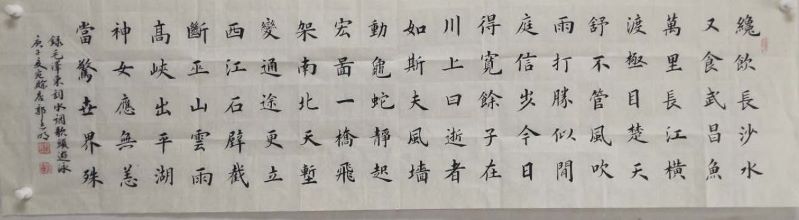 纔飲長沙水
又食武昌魚
萬里長江橫
渡極目楚天
舒不管風吹
雨打勝似間
庭信步今日
得寬餘子在
川上曰逝者
如斯夫風墻
動龜蛇靜起
宏啚一橋飛
架南北天塹
變通途更立
西江石壁截
斷巫山雲雨
髙峽出平湖
神女應無恙
當驚世界殊
錄毛澤東詞水調歌頭游泳
庚子夏